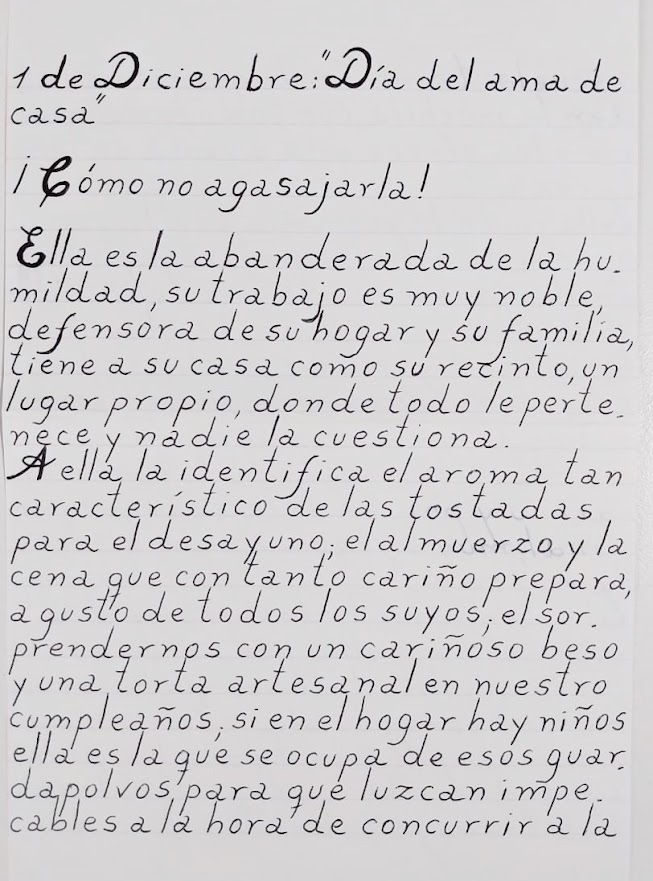 1 de Diciembre: "Día del ama de
casa"
¡Cómo no agasajarla!
Ella es la abanderada de la hu-
mildad, su trabajo es muy noble,
defensora de su hogar y su familia,
tiene a su casa como su recinto, un
lugar propio, donde todo le perte-
nece y nadie la cuestiona.
A ella la identifica el aroma tan
característico de las tostadas
para el desayuno; el almuerzo y la
cena que con tanto cariño prepara,
a gusto de todos los suyos; el sor-
prendernos con un cariñoso beso
y una torta artesanal en nuestro
cumpleaños; si en el hogar hay niños
ella es la que se ocupa de esos guar-
dapolvos para que luzcan impe-
cables a la hora de concurrir a la